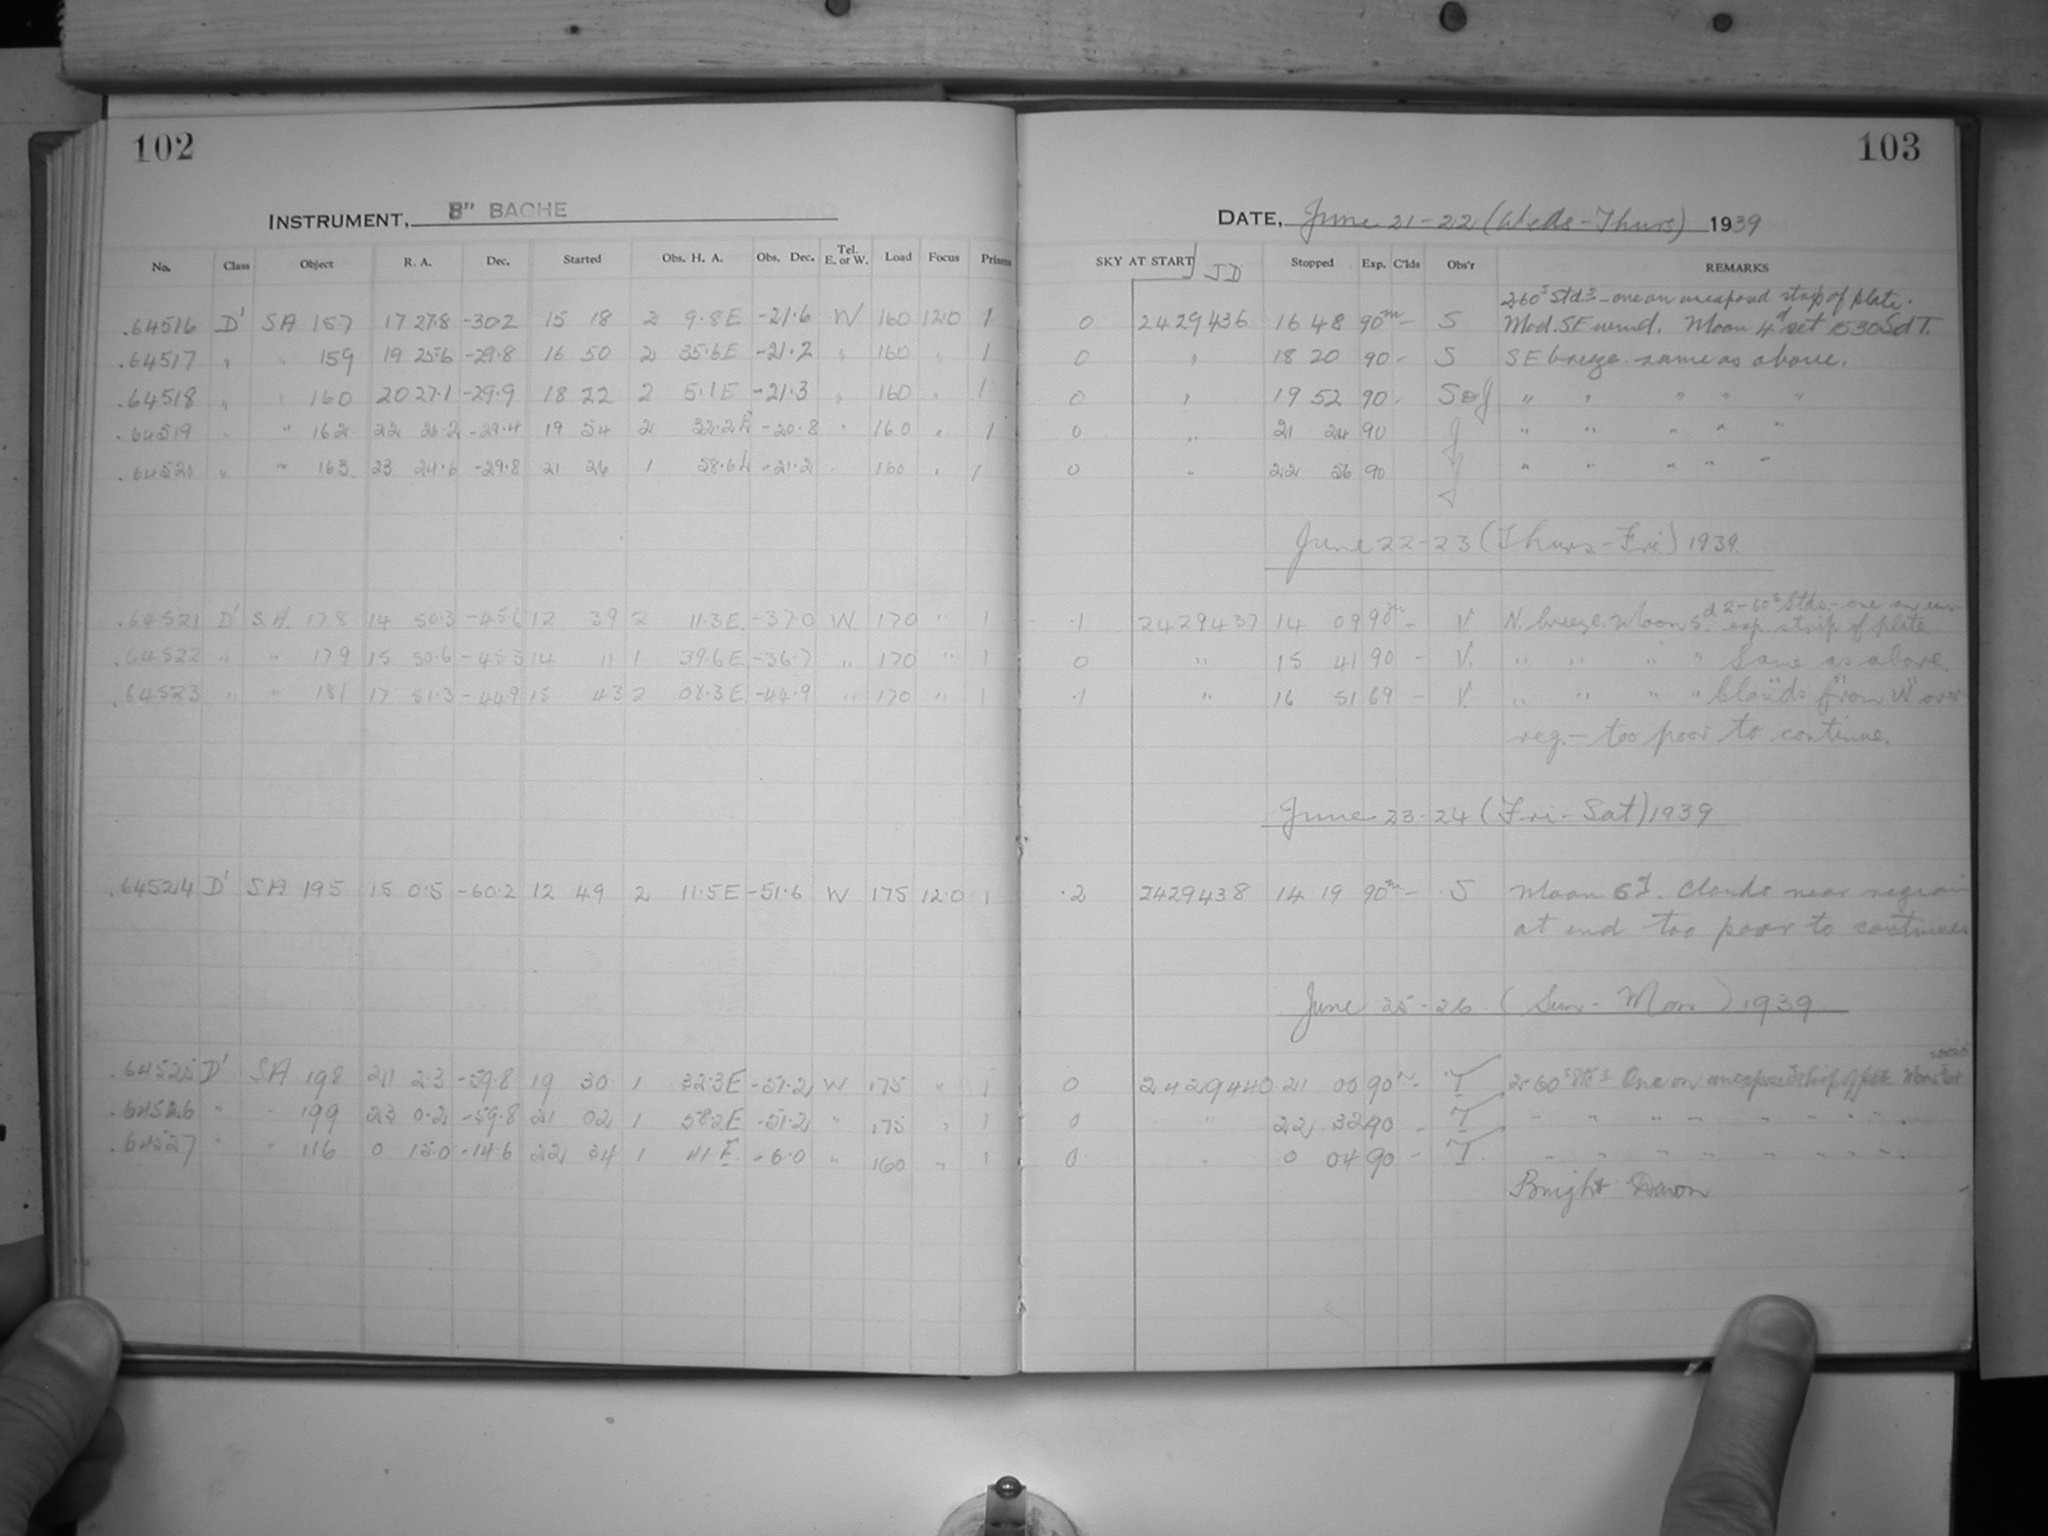 102
INSTRUMENT, 8" BACHE
No. Class Object R. A. Dec. Started Obs. H. A. Obs. Dec. Tel. E. or W. Load Focus Prisms
.64516 D' SA 157 17 27.8 -30.2 15 18 2 9.8E -21.6 W 160 12.0 1
.64517 " " 159 19 25.6 -29.8 16 50 2 35.6E -21.2 " 160 " 1
.64518 " " 160 20 27.1 -29.9 18 22 2 5.1E -21.3 " 160 " 1
.64519 " " 162 22 26.2 -29.4 19 54 2 32.2E -20.8 " 160 " 1
.64520 " " 163 23 24.6 -29.8 21 26 1 58.6E -21.2 " 160 " 1
.64521 D' S.A. 178 14 50.3 -45.6 12 39 2 11.3E -37.0 W. 170 " 1
.64522 " " 179 15 50.6 -45.3 14 11 1 39.6E -36.7 " 170 " 1
.64523 " " 181 17 51.3 -44.9 15 43 2 08.3E -44.9 " 170 " 1
.64524 D' SA 195 15 0.5 -60.2 12 49 2 11.5E -51.6 W 175 12.0 1
.64525 D' SA 198 21 2.3 -59.8 19 30 1 32.3E -51.2 W 175 " 1
.64526 " " 199 23 0.2 -59.8 21 02 1 58.2E -51.2 " 175 " 1
.64527 " " 116 0 15.0 -14.6 22 34 1 41E -6.0 " 160 " 1
103
DATE, June 21-22 (Weds-Thurs) 1939
SKY AT START JD Stopped Exp. C'lds Obs'r REMARKS
2 60s Stds - one on unexposed strip of plate.
0 2429436 16 48 90m - S Mod. SE wind. Moon 4d set 1530 Sd T.
0 " 18 20 90 - S SE breeze same as above.
0 " 19 52 90 - S&J " " " " "
0 " 21 24 90 J " " " " "
0 " 22 56 90 J " " " " "
June 22-23 (Thurs-Fri) 1939.
.1 2429437 14 09 90m - V. N. breeze. Moon 5d. 2-60s Stds. - one on unexp. strip of plate
0 " 15 41 90 - V. " " " " Same as above.
.1 " 16 51 69 - V. " " " " Clouds from W over
reg. - too poor to continue.
June 23-24 (Fri-Sat) 1939
.2 2429438 14 19 90m - S Moon 6d. Clouds near region
at end too poor to continue.
June 25-26 (Sun-Mon) 1939
0 2429440 21 00 90m - T 2-60s Stds One on unexposed strip of plate. Moon Set
0 " 22 32 90 - T " " " " " " "
0 " 0 04 90 - T. " " " " " " "
Bright Dawn